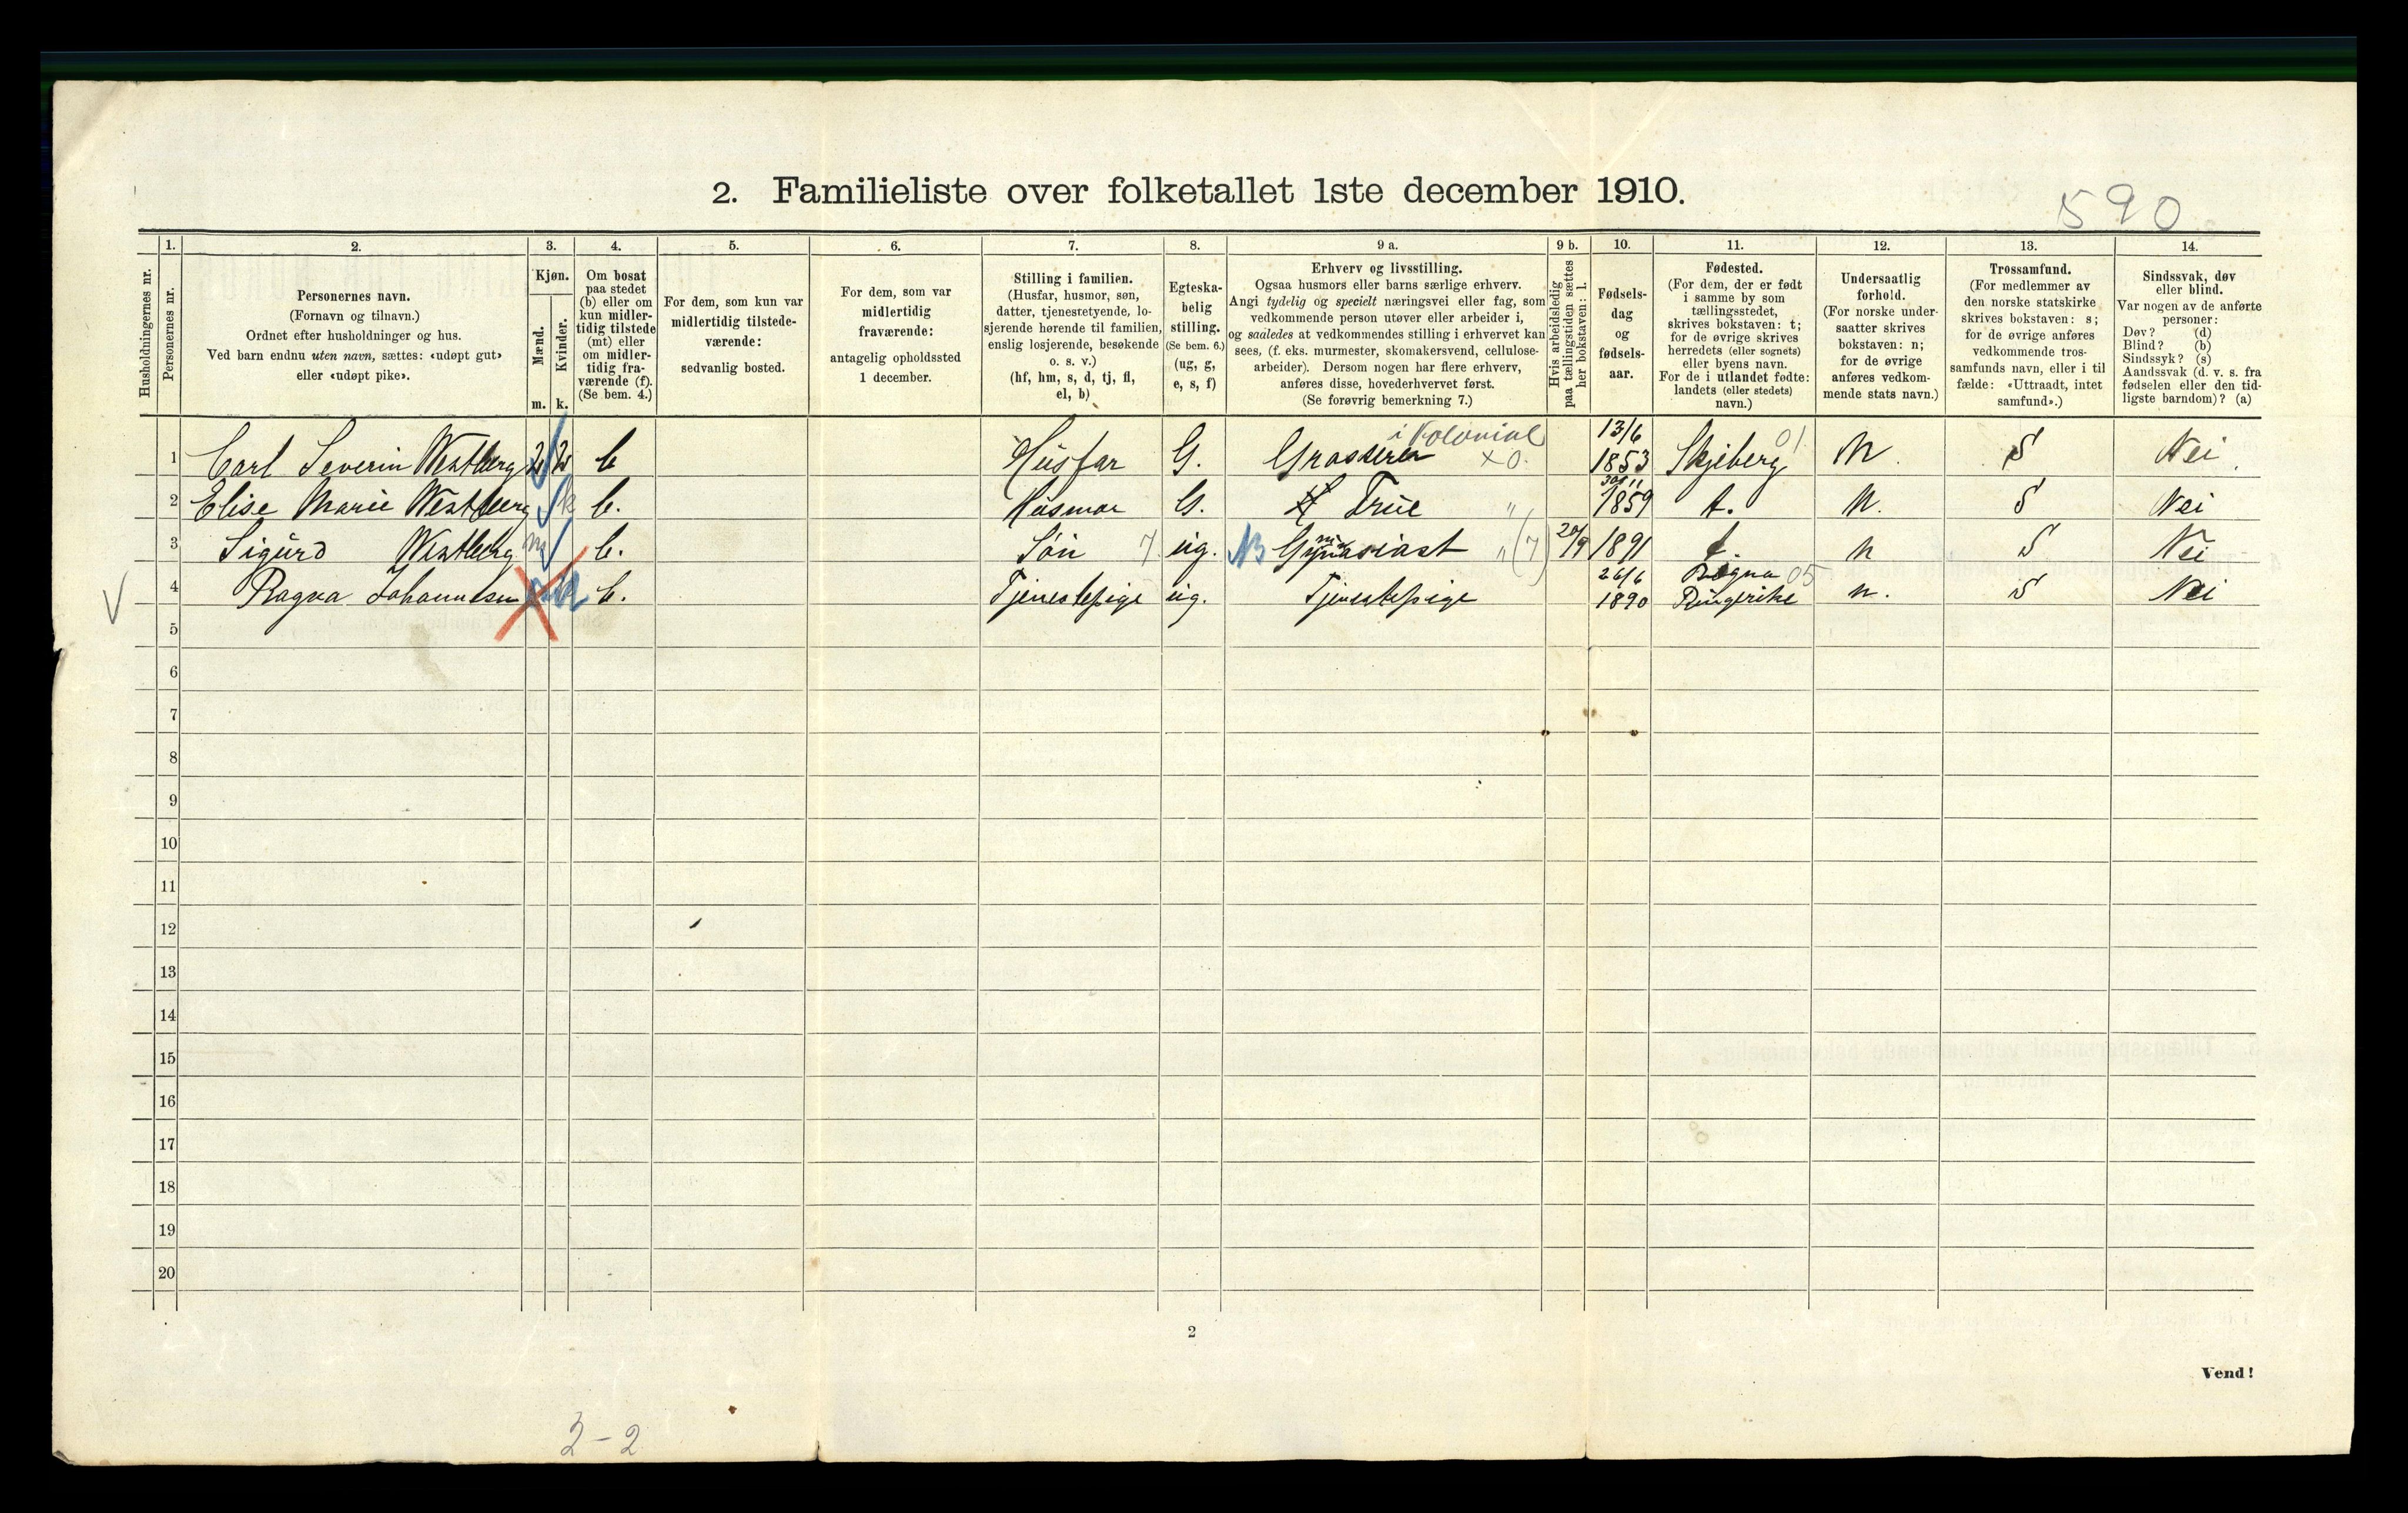 2. Familieliste over folketallet 1ste december 1910.
590
1. 2. 3. 4. 5. 6. 7. 8. 9 a. 9 b. 10. 11. 12. 13. 14.
Husholdningernes nr.
Personernes nr.
Personernes navn.
(Fornavn og tilnavn.)
Ordnet efter husholdninger og hus.
Ved barn endnu uten navn, sættes: «udøpt gut»
eller «udøpt pike».
Kjøn.
Mænd.
Kvinder.
m. k.
Om bosat
paa stedet
(b) eller om
kun midler-
tidig tilstede
(mt) eller
om midler-
tidig fra-
værende (f).
(Se bem. 4.)
For dem, som kun var
midlertidig tilstede-
værende:
sedvanlig bosted.
For dem, som var
midlertidig
fraværende:
antagelig opholdssted
1 december.
Stilling i familien.
(Husfar, husmor, søn,
datter, tjenestetyende, lo-
sjerende hørende til familien,
enslig losjerende, besøkende
o. s. v.)
(hf, hm, s, d, tj, fl,
el, b)
Egteska-
belig
stilling.
(Se bem. 6.)
(ug, g,
e, s, f)
Erhverv og livsstilling.
Ogsaa husmors eller barns særlige erhverv.
Angi tydelig og specielt næringsvei eller fag, som
vedkommende person utøver eller arbeider i,
og saaledes at vedkommendes stilling i erhvervet kan
sees, (f. eks. murmester, skomakersvend, cellulose-
arbeider). Dersom nogen har flere erhverv,
anføres disse, hovederhvervet først.
(Se forøvrig bemerkning 7.)
Hvis arbeidsledig
paa tællingstiden sættes
her bokstaven: l.
Fødsels-
dag
og
fødsels-
aar.
Fødested.
(For dem, der er født
i samme by som
tællingsstedet,
skrives bokstaven: t;
for de øvrige skrives
herredets (eller sognets)
eller byens navn.
For de i utlandet fødte:
landets (eller stedets)
navn.)
Undersaatlig
forhold.
(For norske under-
saatter skrives
bokstaven: n;
for de øvrige
anføres vedkom-
mende stats navn.)
Trossamfund.
(For medlemmer av
den norske statskirke
skrives bokstaven: s;
for de øvrige anføres
vedkommende tros-
samfunds navn, eller i til
fælde: «Uttraadt, intet
samfund».)
Sindssvak, døv
eller blind.
Var nogen av de anførte
personer:
Døv? (d)
Blind? (b)
Sindssyk? (s)
Aandssvak (d. v. s. fra
fødselen eller den tid-
ligste barndom)? (a)
i Kolonial 13/6 01
1 Carl Severin Westberg b Husfar G. Grosserer x 0. 1853 Skjeberg N. S Nei
2 Elise Marie Westberg k b. Husmor G. Frue " 1859 t. N. S Nei
3 Sigurd Westberg m b. Søn 7 ug. Gymnasiast " (7) 20/9 1891 t. n S Nei
26/6 Ragna 05
4 Ragna Johanndsen k b. Tjenestepige ug. Tjenestepige 1890 Ringerike n. S Nei
5
6
7
8
9
10
11
12
13
14
15
16
17
18
19
20
2
Vend!
2-2